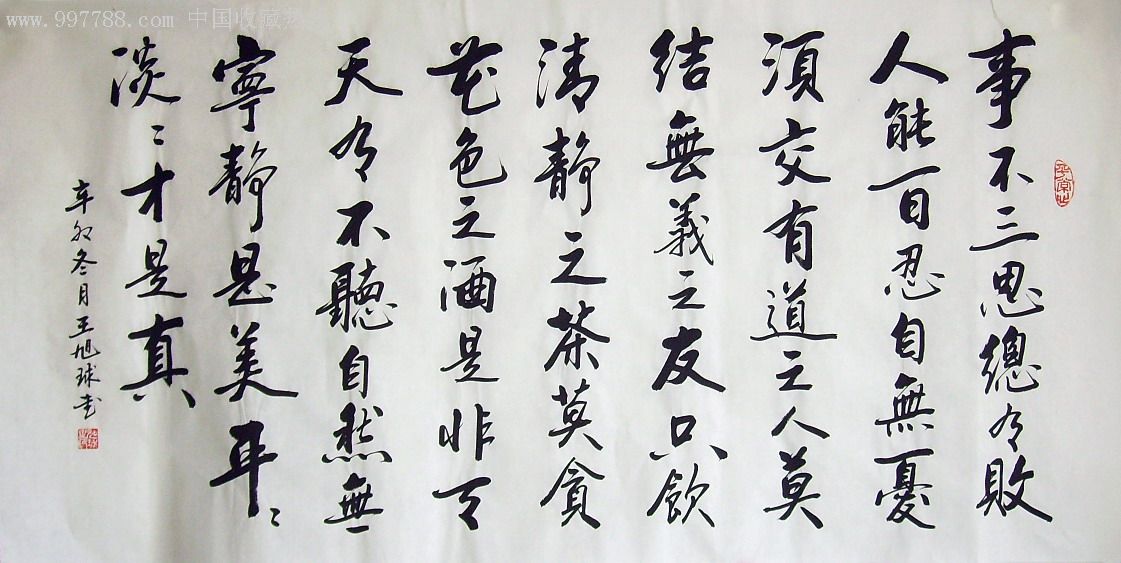 www.997788.com 中国收藏
事不三思總有敗
人能百忍自無憂
須交有道之人莫
結無義之友只飲
清靜之茶莫貪
花色之酒是非天
天有不聽自然無
寧靜是美平〻
淡〻才是真
辛卯冬月王旭球書